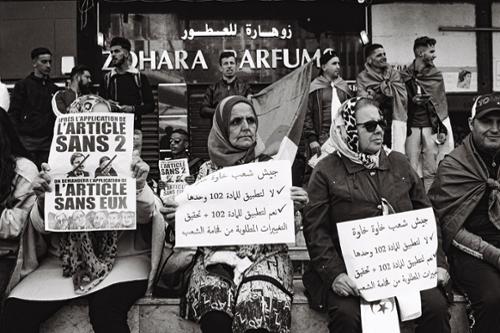 زوهارة للعطور
ZOHARA PARFUMS
APRÈS L'APPLICATION DE
L'ARTICLE
SANS 2
ON DEMANDERA L'APPLICATION DE
L'ARTICLE
SANS EUX
جيش شعب خاوة خاوة
✓ لا لتطبيق المادة 102 وحدها
✓ نعم لتطبيق المادة 102 + تحقيق
التغييرات المطلوبة من فخامة الشعب
جيش شعب خاوة خاوة
✓ لا لتطبيق المادة 102 وحدها
✓ نعم لتطبيق المادة 102 + تحقيق
التغييرات المطلوبة من فخامة الشعب
L'ARTICLE
SANS 2